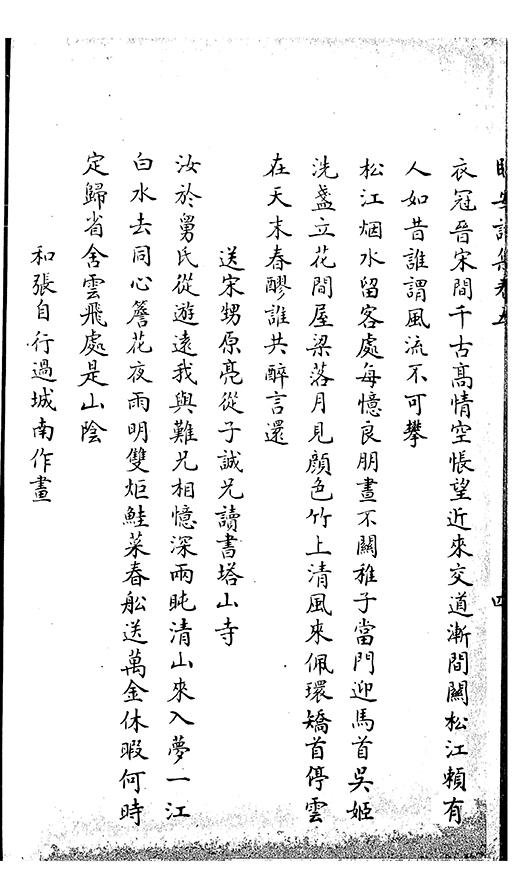 詩集卷五 四
衣冠晉宋間千古髙情空悵望近來交道漸間關松江賴有
人如昔誰謂風流不可攀
松江烟水留客處每憶良朋晝不關稚子當門迎馬首吳姬
洗盞立花間屋梁落月見顔色竹上清風來佩環矯首停雲
在天末春醪誰共醉言還
送宋甥原亮從子誠兄讀書塔山寺
汝於舅氏從遊遠我與難兄相憶深兩眈清山來入夢一江
白水去同心簷花夜雨明雙炬鮭菜春船送萬金休暇何時
定歸省舍雲飛處是山陰
和張自行過城南作畫